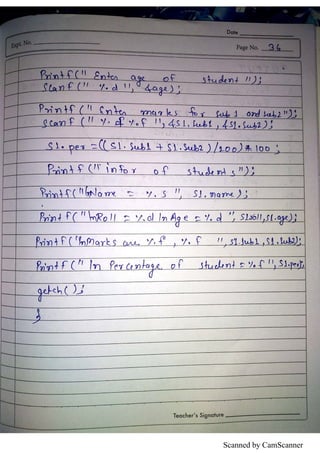 Date
Expt. No.
Page No. 36
Printf (" Enter age of student ");
Scanf (" %.d ", &age);
Printf (" Enter marks for sub 1 and sub2");
Scanf (" %.f %.f ", &S1.sub1, &S1.sub2);
S1.per = ((S1.sub1 + S1.sub2)/200)* 100;
Printf (" infor of students");
Printf ("\nName = %.s ", S1.name);
Printf ("\nRoll = %.d \n Age = %.d ", S1.roll, S1.age);
Printf ("\nMarks are %.f , %.f ", S1.sub1, S1.sub2);
Printf (" \n Percentage of student = %.f ", S1.per);
getch();
}
Teacher's Signature
Scanned by CamScanner